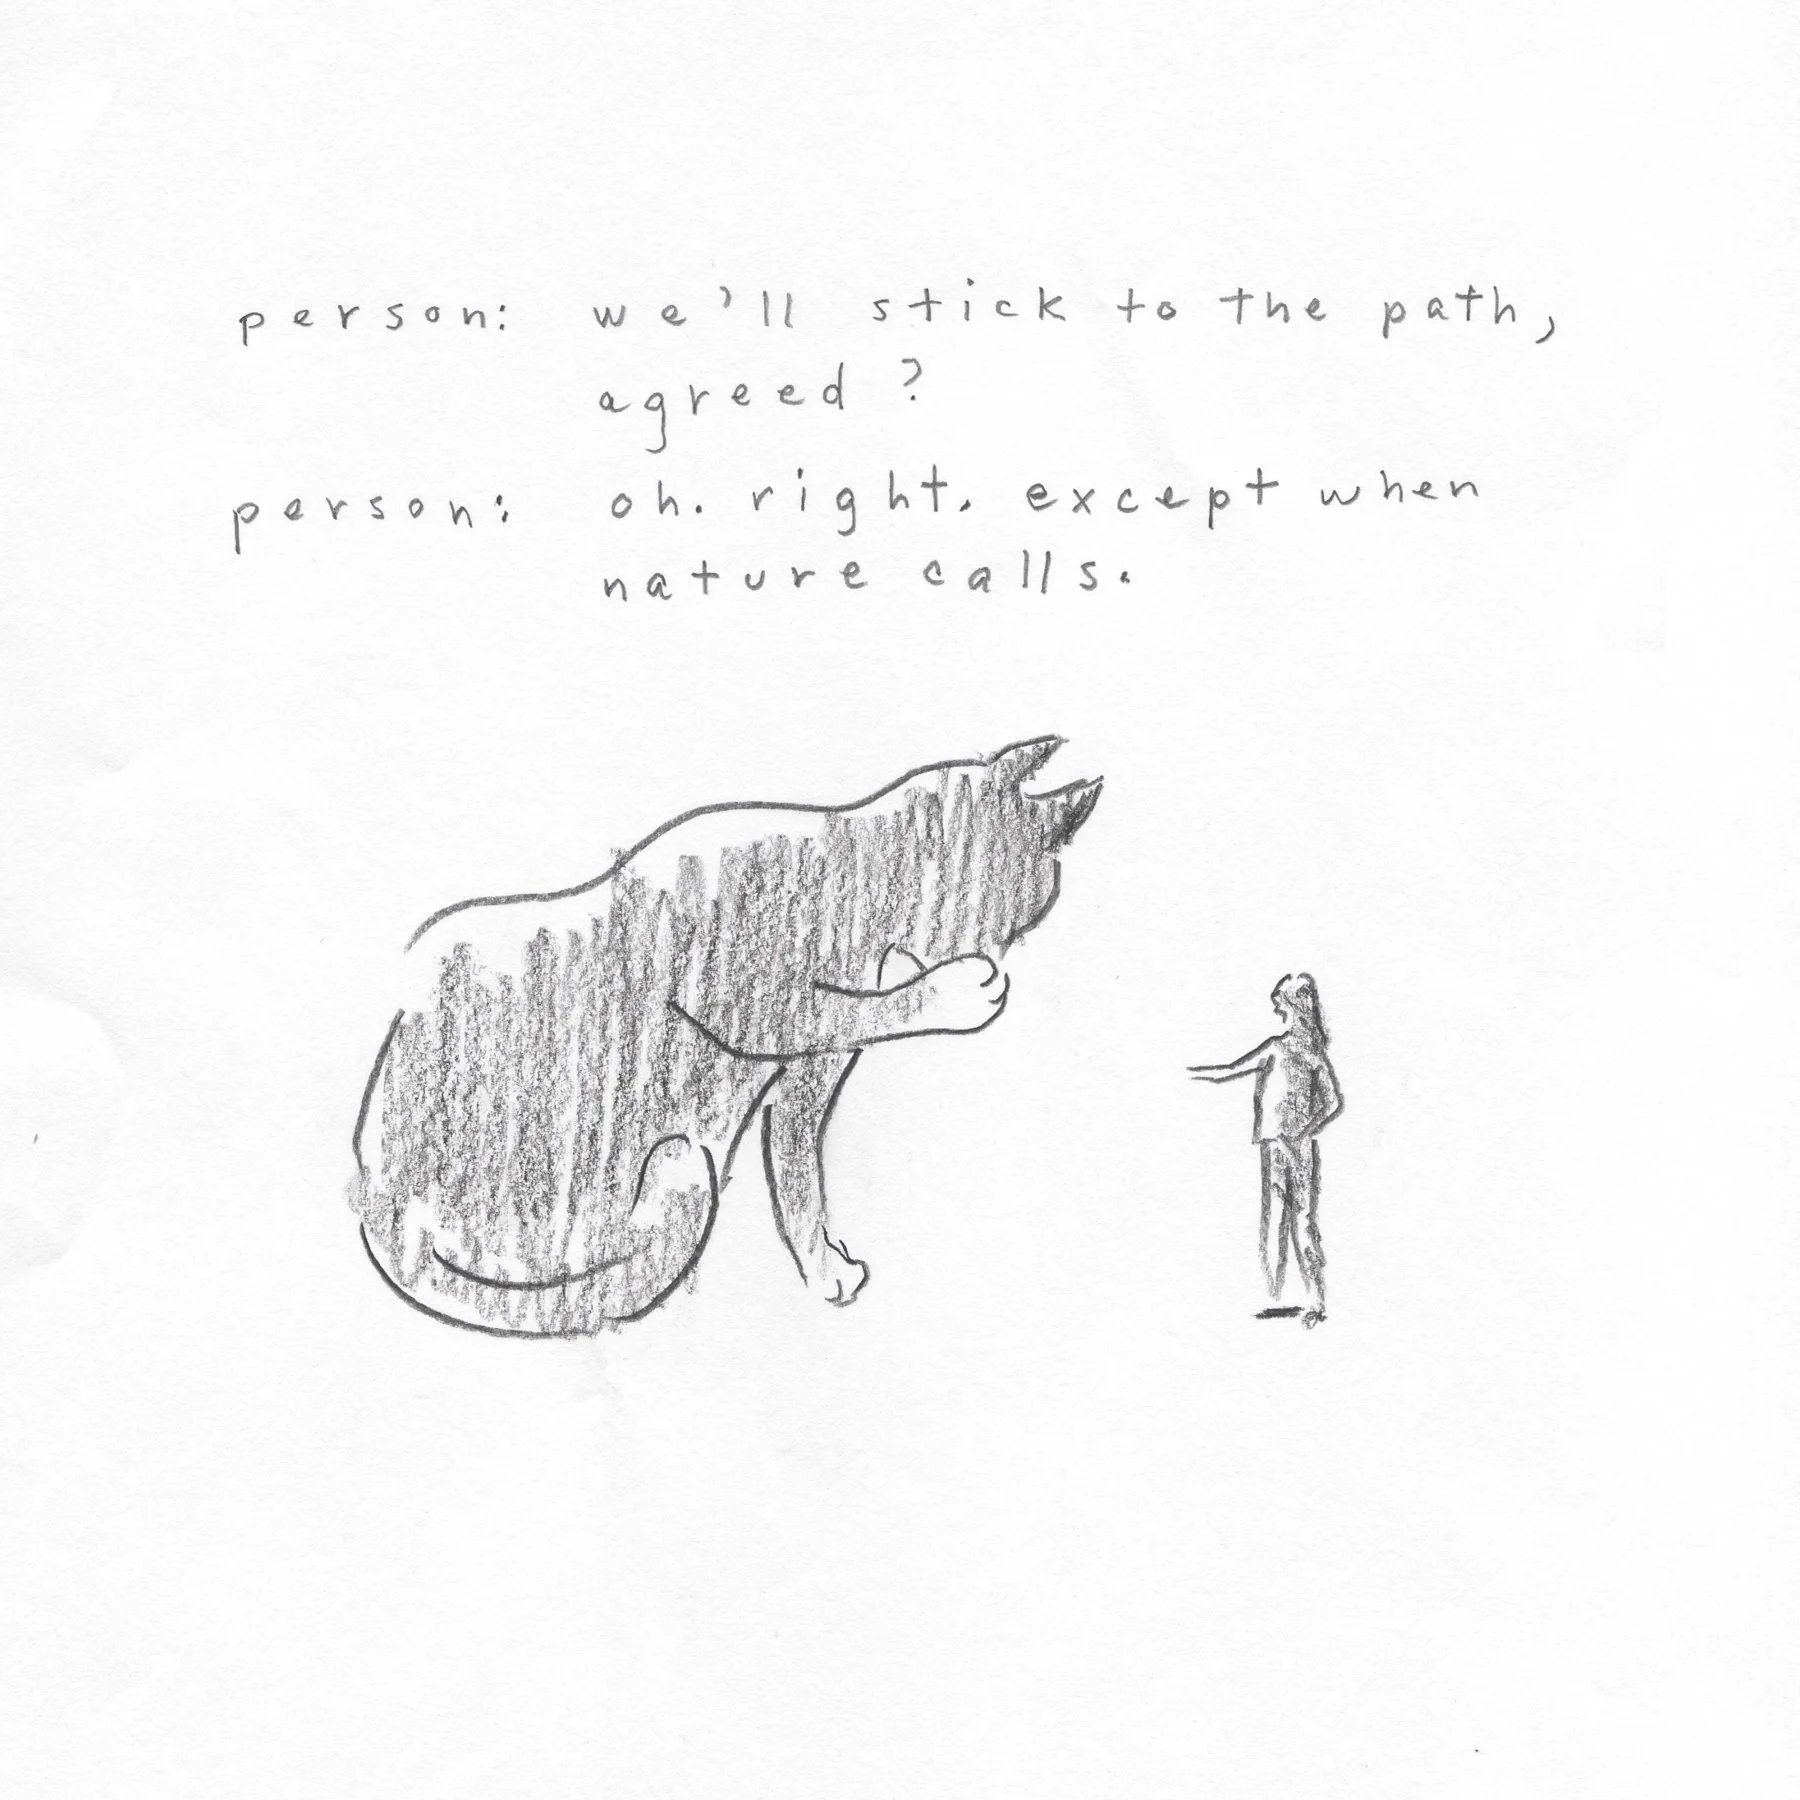 person: we'll stick to the path,
agreed?
person: oh. right. except when
nature calls.